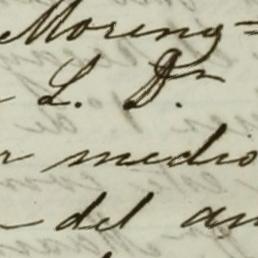 Moreno=
L. Dn
r medio
del an